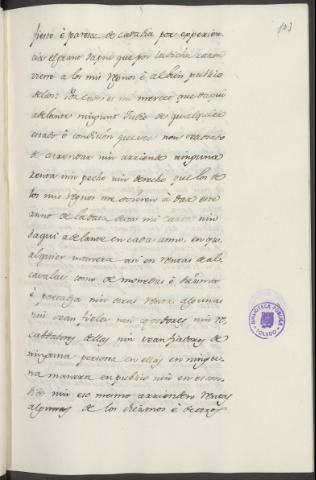 103
fiesto é parece de cada dia por experien-
cia el grand dapño que por la dicha razon
viene a los mis regnos é al bien publico
dellos: Por ende es mi merced que daqui
adelante ningunt Judio de qualquier
estado é condicion que sea non sea osado
de arrendar nin arriende ninguna
renta nin pecho nin derecho que los de
los mis regnos me ovieren á dar este
anno de la data desta mi carta nin
daqui adelante en cada anno, en qu-
alquier manera asi en rentas de al-
cavalas como de monedas é
é portazgo nin otras rentas algunas
nin sean fieles nin cogedores nin re-
cabdadores dellas nin sean fiadores de
ninguna persona en ellas en ningu-
na manera en publico nin en escon-
dido nin eso mesmo arrienden rentas
algunas de los diezmos é de otros
BIBLIOTECA PÚBLICA
TOLEDO